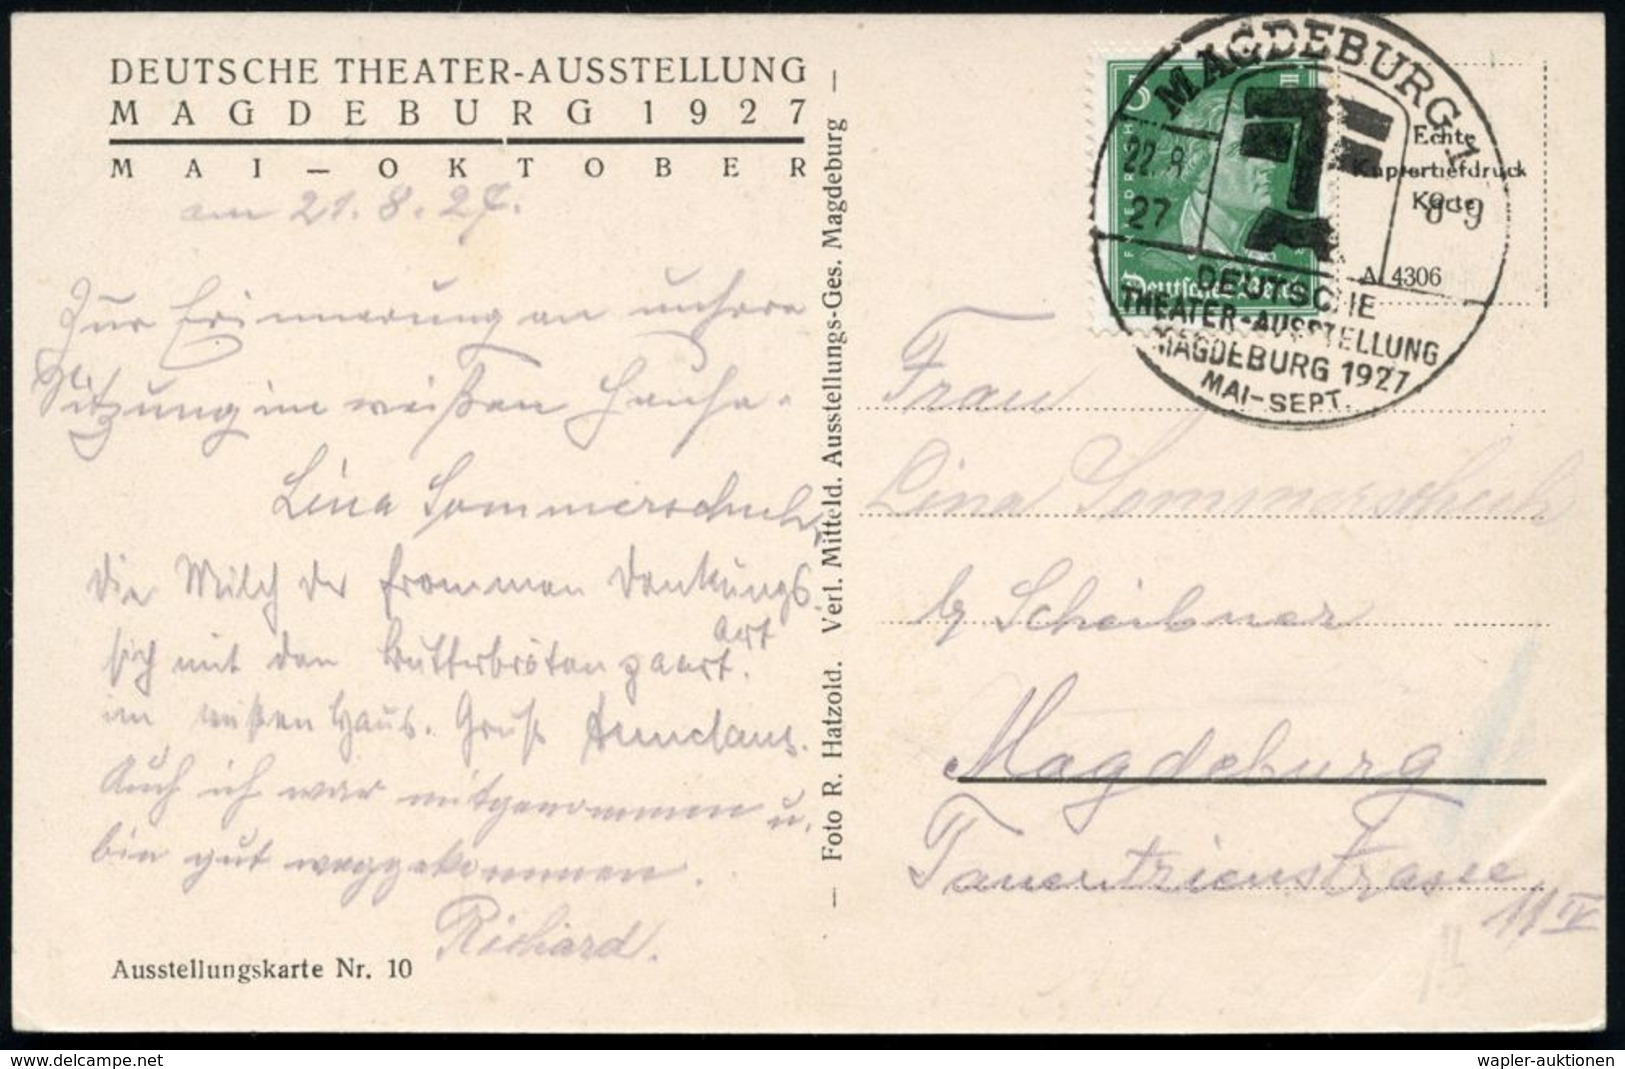 DEUTSCHE THEATER-AUSSTELLUNG
MAGDEBURG 1927
MAI – OKTOBER
am 21.8.27.
Zur Erinnerung an unsere
Sitzung im weißen Hause.
Lina Sommerschuh
Die Milch der frommen Denkungs
art
sich mit den Butterbröten paart.
im weißen Haus. Gruß
Auch ich war mitgenommen u.
bin gut weggekommen.
Richard.
Ausstellungskarte Nr. 10
— Foto R. Hatzold. Verl. Mitteld. Ausstellungs-Ges. Magdeburg —
MAGDEBURG 1
22.8.
27
8-9
DEUTSCHE
THEATER-AUSSTELLUNG
MAGDEBURG 1927
MAI-SEPT.
Deutsches Reich
Echte
Kupfertiefdruck
Karte
A 4306
Frau
Lina Sommerschuh
b/ Scheibner
Magdeburg
Tauentzienstrasse
11 IV
delcampe.net
wapler-auktionen